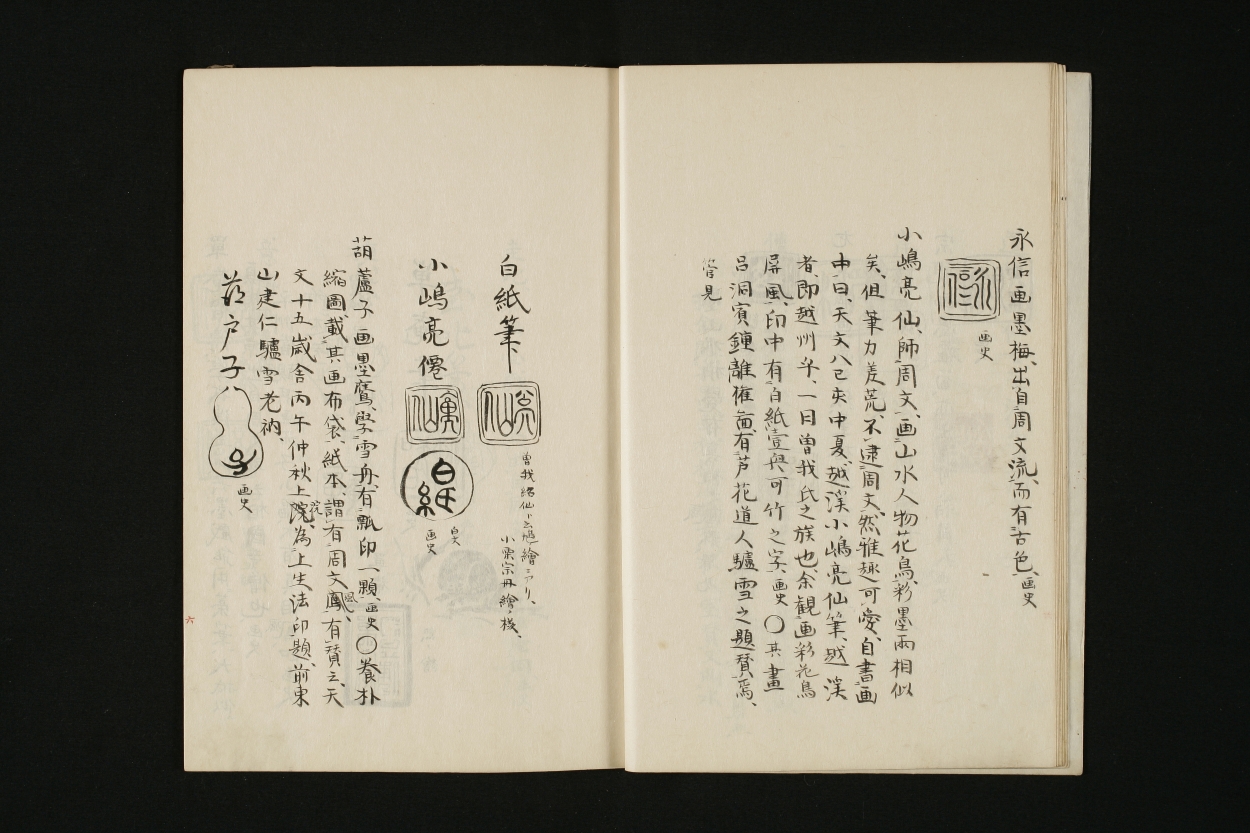 永信画墨梅、出自周文流、而有古色、画史
永信
画史
小嶋亮仙、師周文、画山水人物花鳥、彩墨両相似
矣、但筆力差荒、不逮周文、然雅趣可愛、自書画
中曰、天文八己亥中夏、越渓小嶋亮仙筆、越渓
者、即越州乎、一日曽我氏之族也、余観画彩花鳥
屏風、印中有白紙壹與可竹之字、画史〇其畫
呂洞賓鍾離権圖、有芦花道人驢雪之題賛焉、
管見
白紙筆
亮仙
小栗宗丹繪ノ棧、
小嶋亮僊
嶋仙
白紙
画史
葫蘆子 画墨鷹、學雪舟、有瓢印一顆、画史〇養朴
縮圖載其画布袋、紙本、謂有周文風、有賛云、天
文十五歳舎丙午仲秋上院為上生法印題、前東
山建仁驢雪老衲、
芦戸子
画史
六